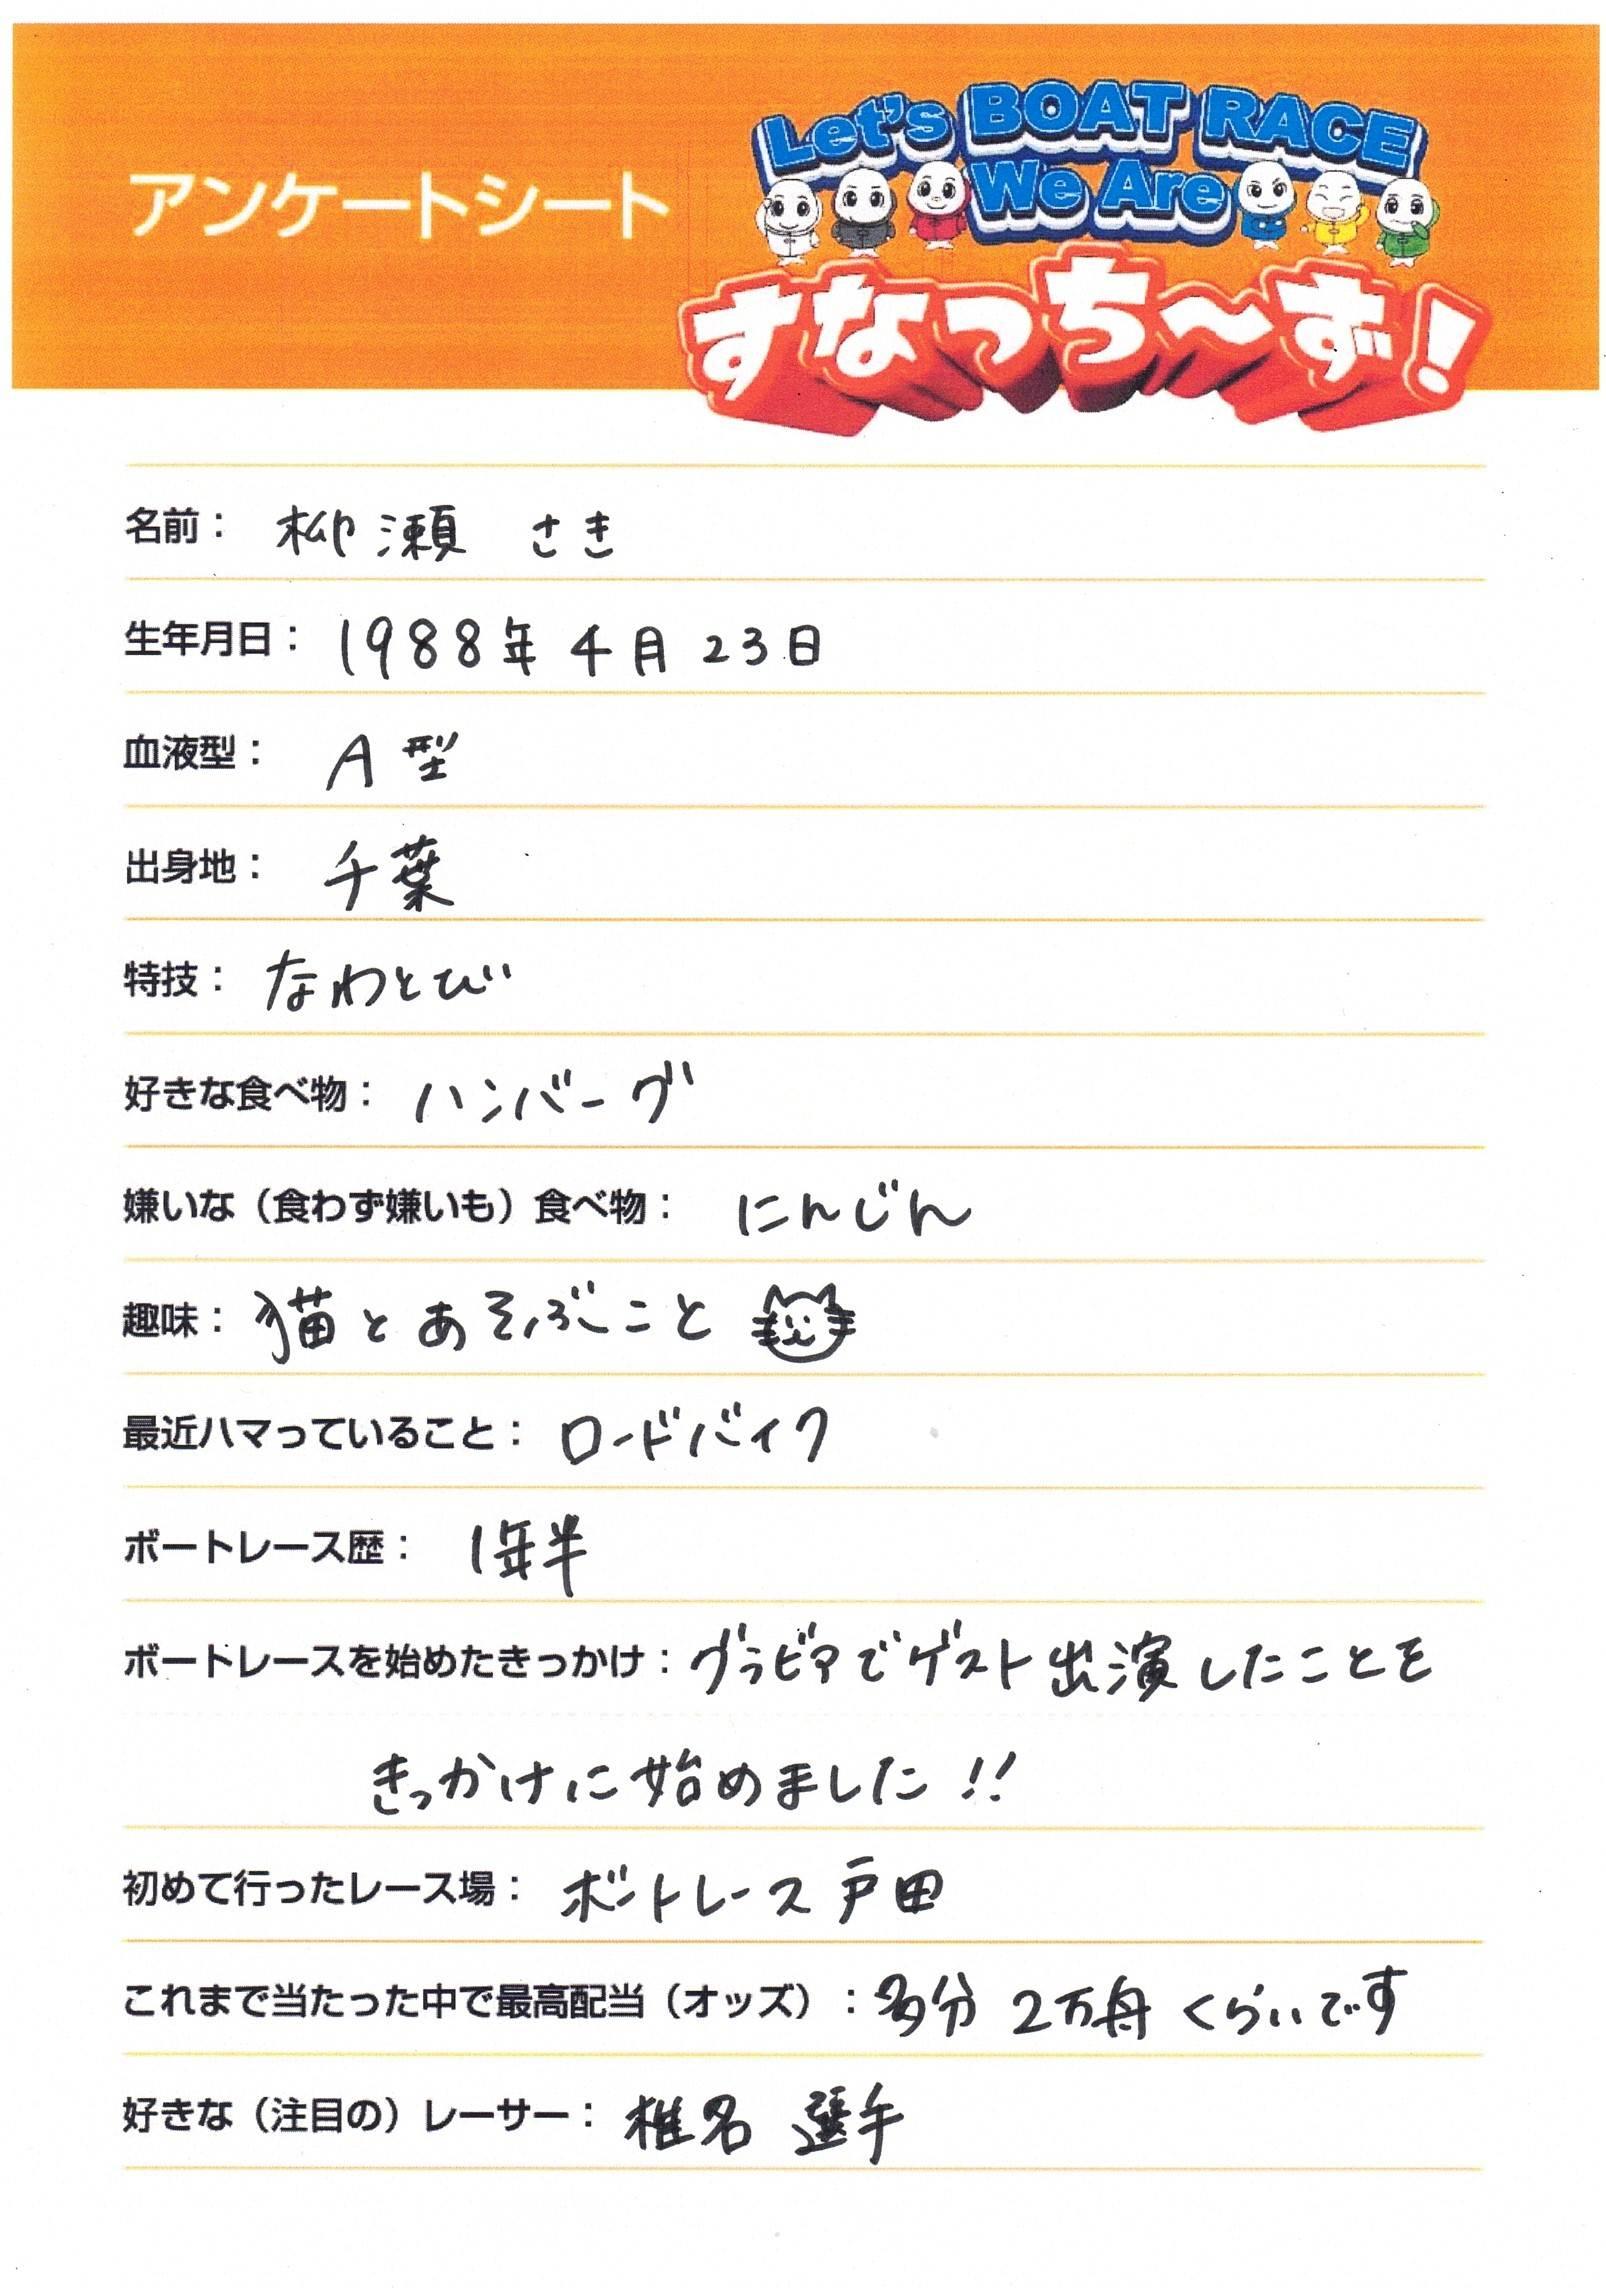 アンケートシート
Let's BOAT RACE
We Are
すなっち〜ず!
名前： 柳瀬 さき
生年月日： 1988年 4月 23日
血液型： A型
出身地： 千葉
特技： なわとび
好きな食べ物： ハンバーグ
嫌いな（食わず嫌いも）食べ物： にんじん
趣味： 猫とあそぶこと
最近ハマっていること： ロードバイク
ボートレース歴： 1年半
ボートレースを始めたきっかけ： グラビアでゲスト出演したことを
きっかけに始めました!!
初めて行ったレース場： ボートレース戸田
これまで当たった中で最高配当（オッズ）： 多分 2万舟くらいです
好きな（注目の）レーサー： 椎名 選手